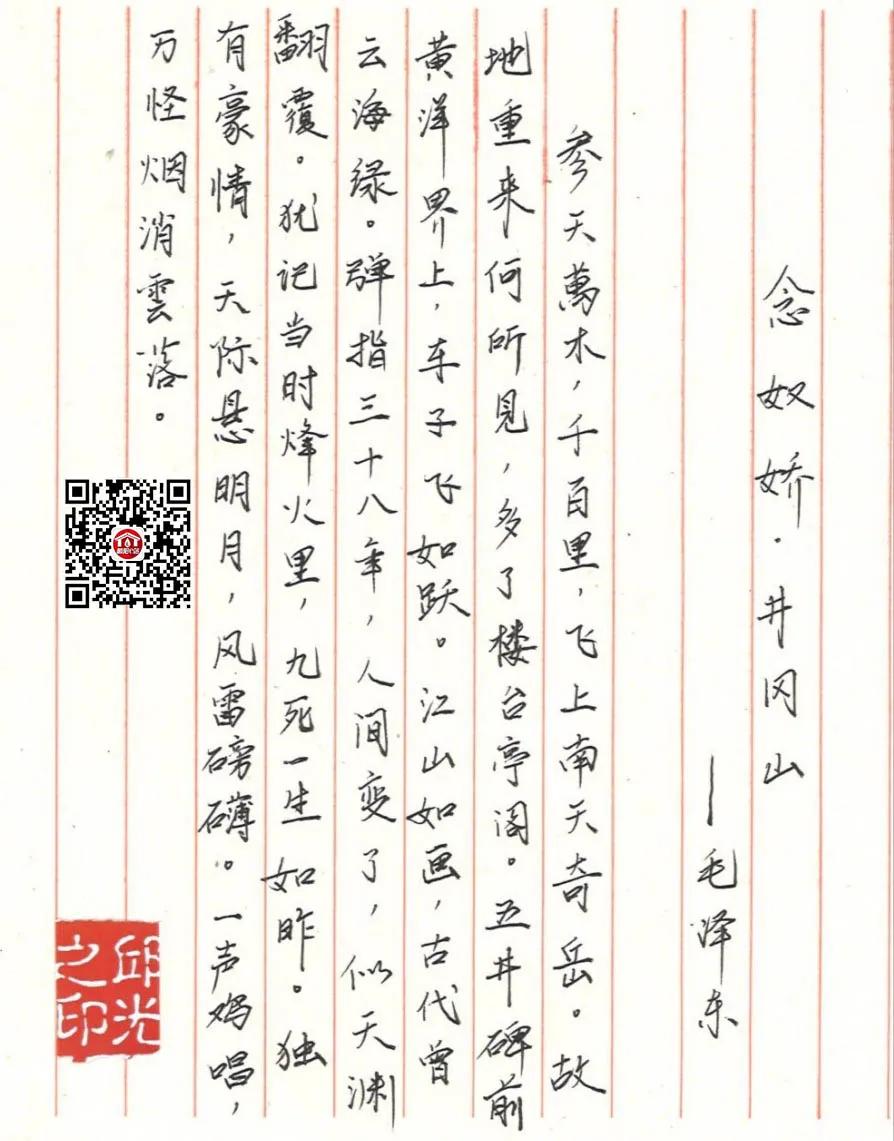 念奴娇·井冈山
—毛泽东
参天萬木，千百里，飞上南天奇岳。故
地重来何所见，多了楼台亭阁。五井碑前
黄洋界上，车子飞如跃。江山如画，古代曾
云海绿。弹指三十八年，人间变了，似天渊
翻覆。犹记当时烽火里，九死一生如昨。独
有豪情，天际悬明月，风雷磅礴。一声鸡唱，
万怪烟消雲落。
邱光之印